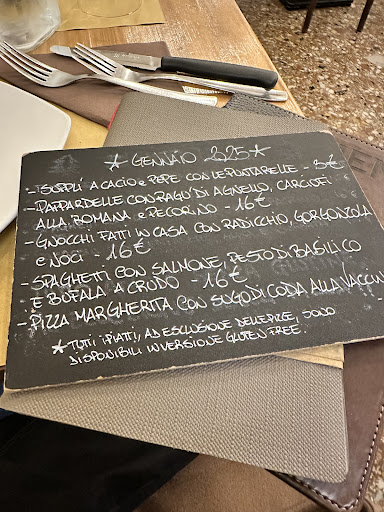 * GENNAIO 2025 *
- SUPPLÌ A CACIO e PEPE CON LE PUNTARELLE - 3€
- PAPPARDELLE CON RAGÙ DI AGNELLO, CARCIOFI
ALLA ROMANA e PECORINO - 16€
- GNOCCHI FATTI IN CASA CON RADICCHIO, GORGONZOLA
e NOCI - 16€
- SPAGHETTI CON SALMONE, PESTO DI BASILICO
E BUFALA A CRUDO - 16€
- PIZZA MARGHERITA CON SUGO DI CODA ALLA VACCIN
* TUTTI I PIATTI, AD ESCLUSIONE DELLE PIZZE, SONO
DISPONIBILI IN VERSIONE GLUTEN FREE.